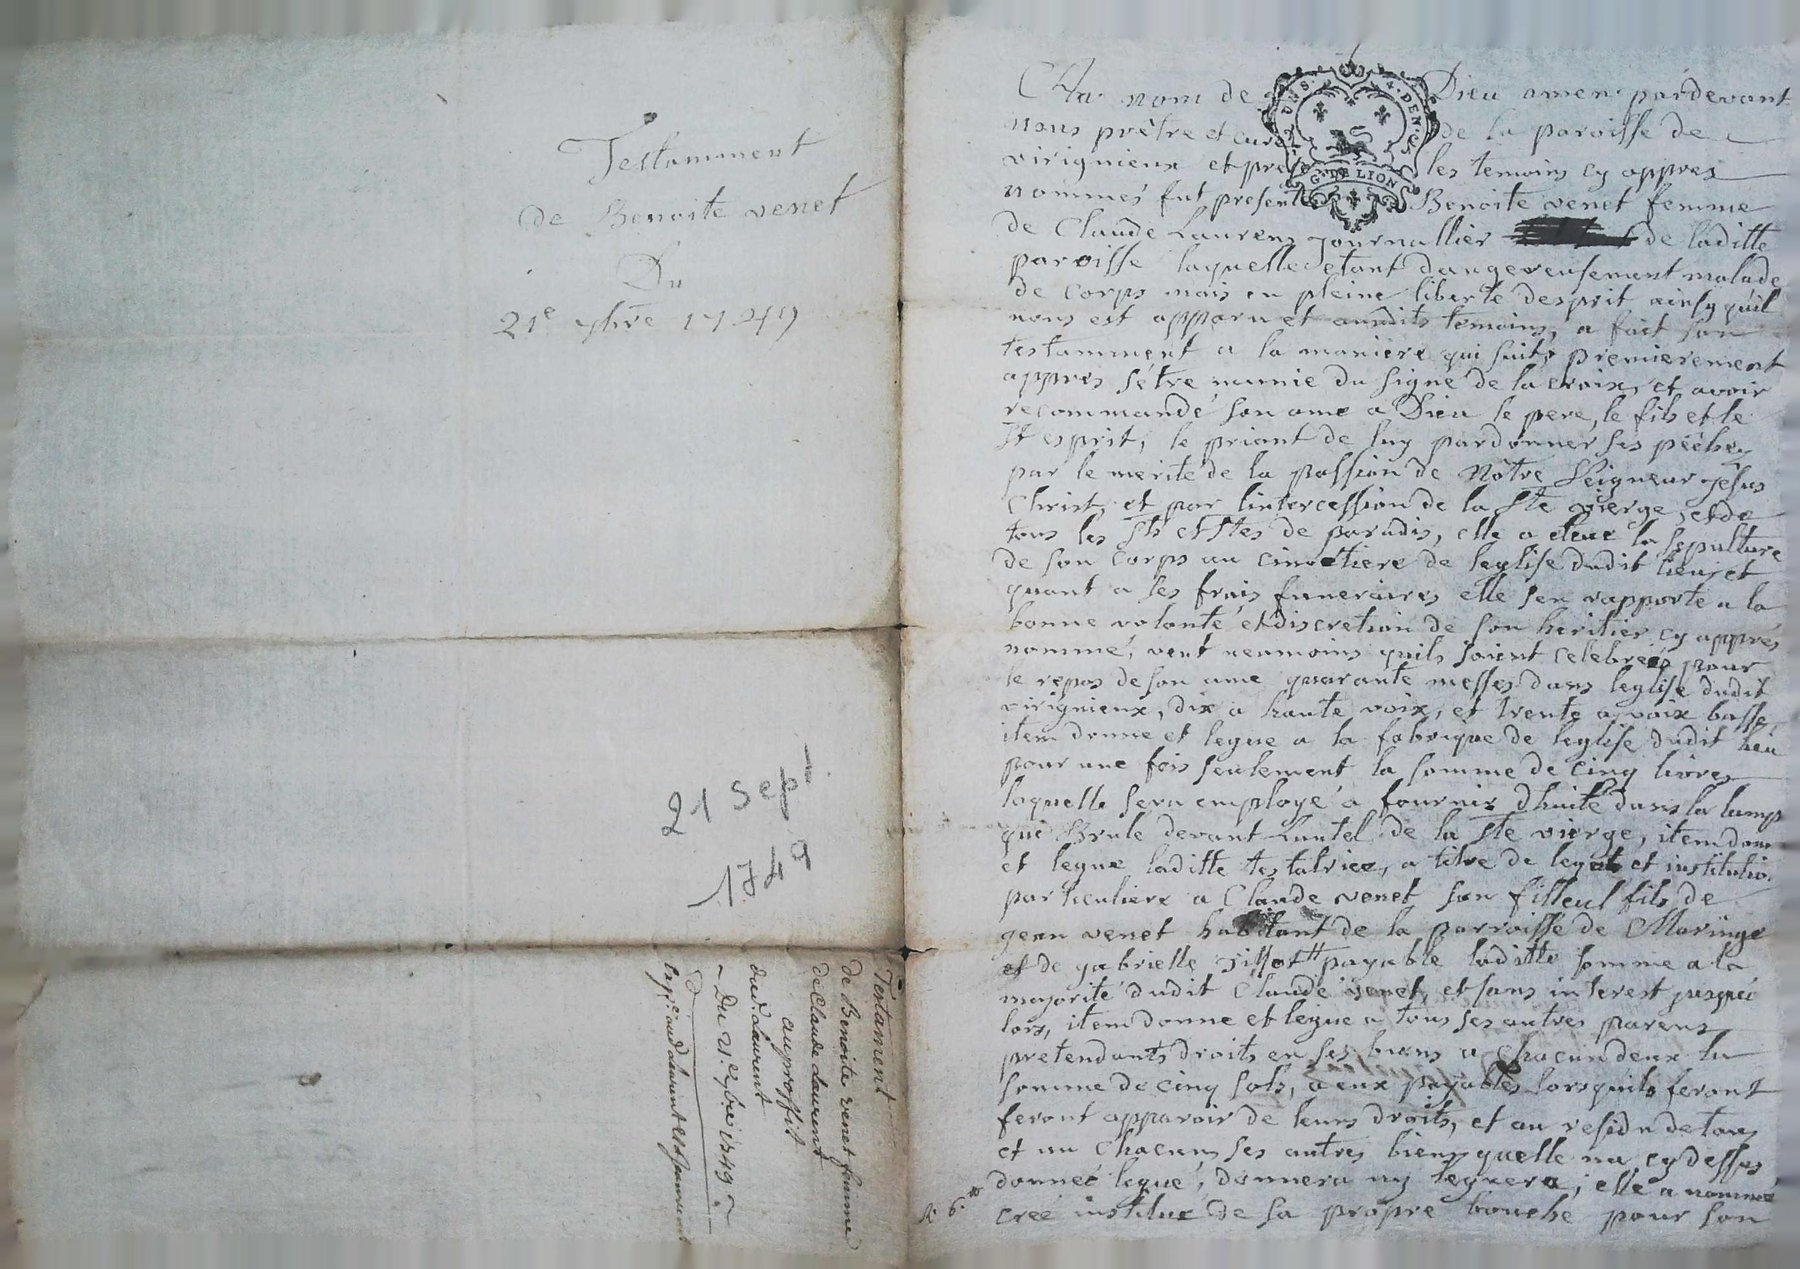 Testamment
de Benoite venet
Du
21e 7bre 1749
21 Sept
1749
Testament
de Benoite venet femme
de Claude Laurent
au proffit
dud. Laurent
Du 21e 7bre 1749
Au nom de Dieu amen pardevant
nous prêtre et curé de la paroisse de
virignieux et les temoins cy appres
nommés fut presente Benoite venet femme
de Claude Laurens journallier de laditte
paroisse laquelle etant dangereusement malade
de corps mais en pleine liberté desprit ainsy quil
nous est apparu et auxdits temoins, a fait son
testamment a la maniere qui suit, premierement
appres sétre munie du signe de la croix, et avoir
recommandé son ame a Dieu le pere, le fils et le
St esprit, le priant de luy pardonner ses péchez
par le merite de la passion de Nôtre Seigneur Jésus
Christ, et par lintercession de la Ste vierge, et de
tous les Sts et Stes de paradis, elle a eleue la sepulture
de son corps au cimetiere de leglise dudit lieu, et
quant a ses frais funeraires elle sen rapporte a la
bonne volonté et discretion de son heritier cy apprés
nommé, veut neanmoins quils soient celebreés pour
le repos de son ame quarante messes dans leglise dudit
virignieux, dix a haute voix, et trente a voix basse,
item donne et legue a la fabrique de leglise dudit lieu
pour une fois seulement la somme de cinq livres
laquelle sera employé a fournir dhuile dans la lamp
qui Brule devant Lautel de la Ste vierge, item donne
et legue laditte testatrice, a titre de legat et institutio
particuliere a Claude venet son filleul fils de
jean venet habitant de la parroisse de Maringe
et de gabrielle payable laditte somme a la
majorité dudit Claude venet, et sans interest jusque
lors, item donne et legue a tous ses autres parens
pretendants droits en ses biens a chacun deux la
somme de cinq sols, a eux payables lorsquils feront
feront apparoir de leurs droits, et au residu de tous
et un chacuns ses autres biens quelle na cy dessus
donneé legué, donnera ny leguera, elle a nommé
creé institue de sa propre bouche pour son